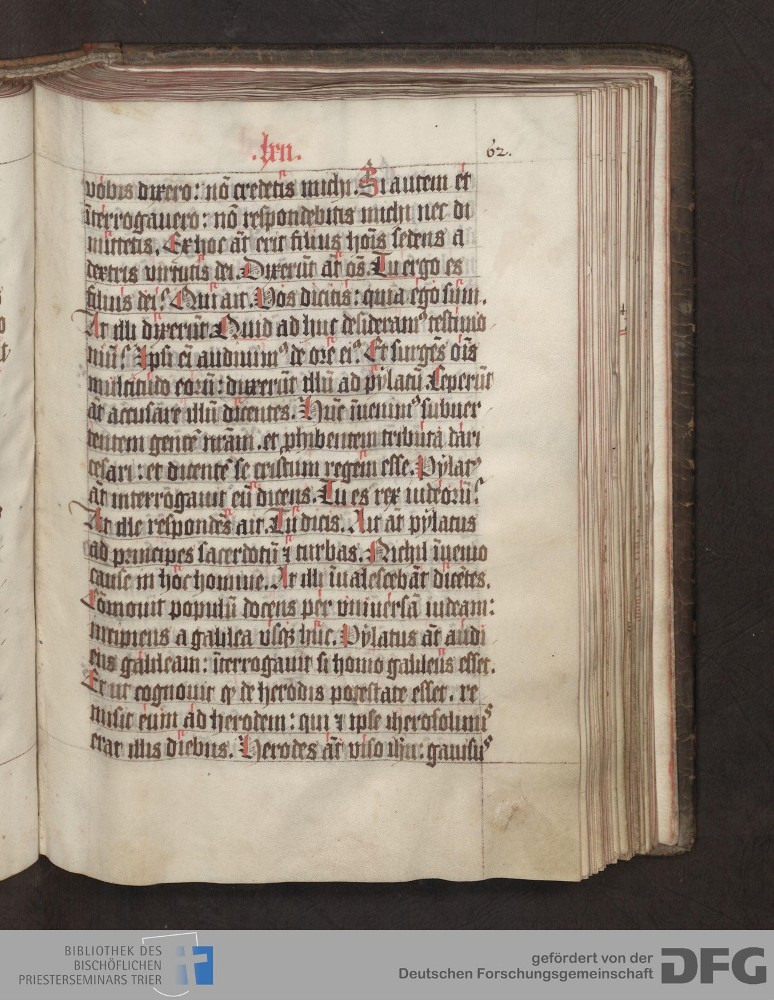 .lxii.
62.
vobis dixero: nō credetis michi. Si autem et
īterrogauero: nō respondebitis michi nec di
mittetis. Ex hoc āt erit filius hoīs sedens a
dextris virtutis dei. Dixerūt āt oēs. Tu ergo es
filius dei? Qui ait. Vos dicitis: quia ego sum.
At illi dixerūt Quid ad huc desideramꝰ testimo
niū? Ipsi eī audiuimꝰ de ore eiꝰ. Et surgēs oīs
multitudo eorū: duxerūt illū ad pylatū. Ceperūt
āt accusare illū dicentes. Hūc īuenimꝰ subuer
tentem gentē nr̄am. et ꝓhibentem tributa dari
cesari: et dicentē se cristum regem esse. Pylatꝰ
āt interrogauit eū dicens. Tu es rex iudeorū?
At ille respondēs ait. Tu dicis. Ait āt pylatus
ad principes sacerdotū ⁊ turbas. Nichil īuenio
cause in hoc homine. At illi īualescebāt dicētes.
Cōmouit populū docens per vniuersā iudeam:
incipiens a galilea vsqꝫ huc. Pylatus āt audi
ens galileam: īterrogauit si homo galileus esset.
Et ut cognouit ꝙ de herodis potestate esset. re
misit eum ad herodem: qui ⁊ ipse iherosolimis
erat illis diebus. Herodes āt viso ih̄u: gauisuꝰ
BIBLIOTHEK DES
BISCHÖFLICHEN
PRIESTERSEMINARS TRIER
gefördert von der
Deutschen Forschungsgemeinschaft
DFG